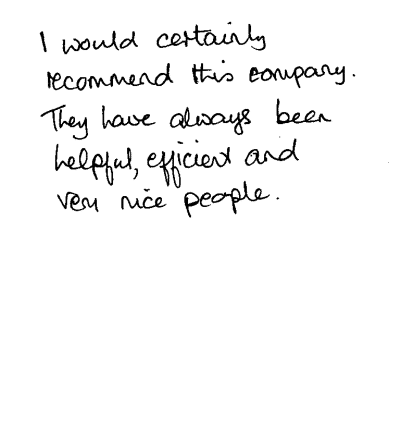 I would certainly
recommend this company.
They have always been
helpful, efficient and
very nice people.